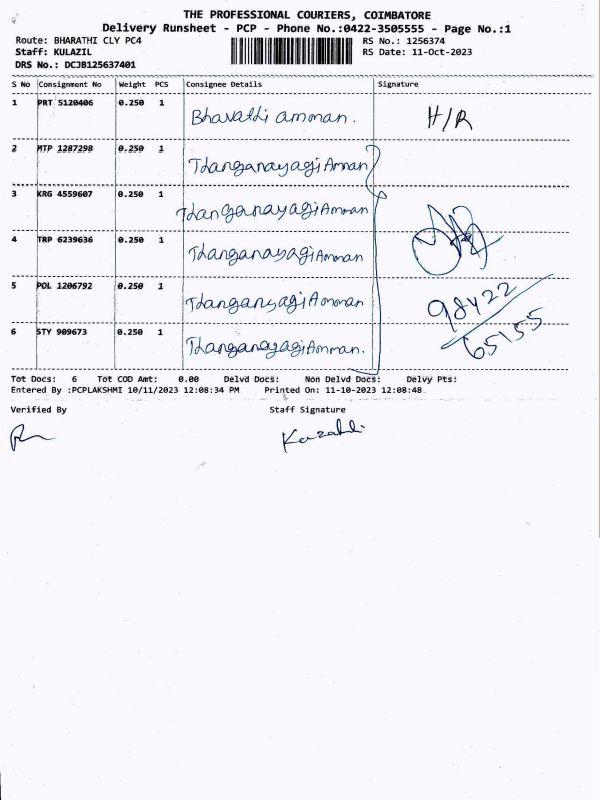 THE PROFESSIONAL COURIERS, COIMBATORE
Delivery Runsheet - PCP - Phone No.:0422-3505555 - Page No.:1
Route: BHARATHI CLY PC4 RS No.: 1256374
Staff: KULAZIL RS Date: 11-Oct-2023
DRS No.: DCJB125637401
S No Consignment No Weight PCS Consignee Details Signature
1 PRT 5120406 0.250 1 Bharathi amman. H/R
2 MTP 1287298 0.250 1 ThanganayagiAmman
3 KRG 4559607 0.250 1 ThanganayagiAmman
4 TRP 6239636 0.250 1 ThanganayagiAmman
5 POL 1206792 0.250 1 ThanganyagiAmman 98422
6 STY 909673 0.250 1 ThanganayagiAmman. 65155
Tot Docs: 6 Tot COD Amt: 0.00 Delvd Docs: Non Delvd Docs: Delvy Pts:
Entered By :PCPLAKSHMI 10/11/2023 12:08:34 PM Printed On: 11-10-2023 12:08:48
Verified By Staff Signature